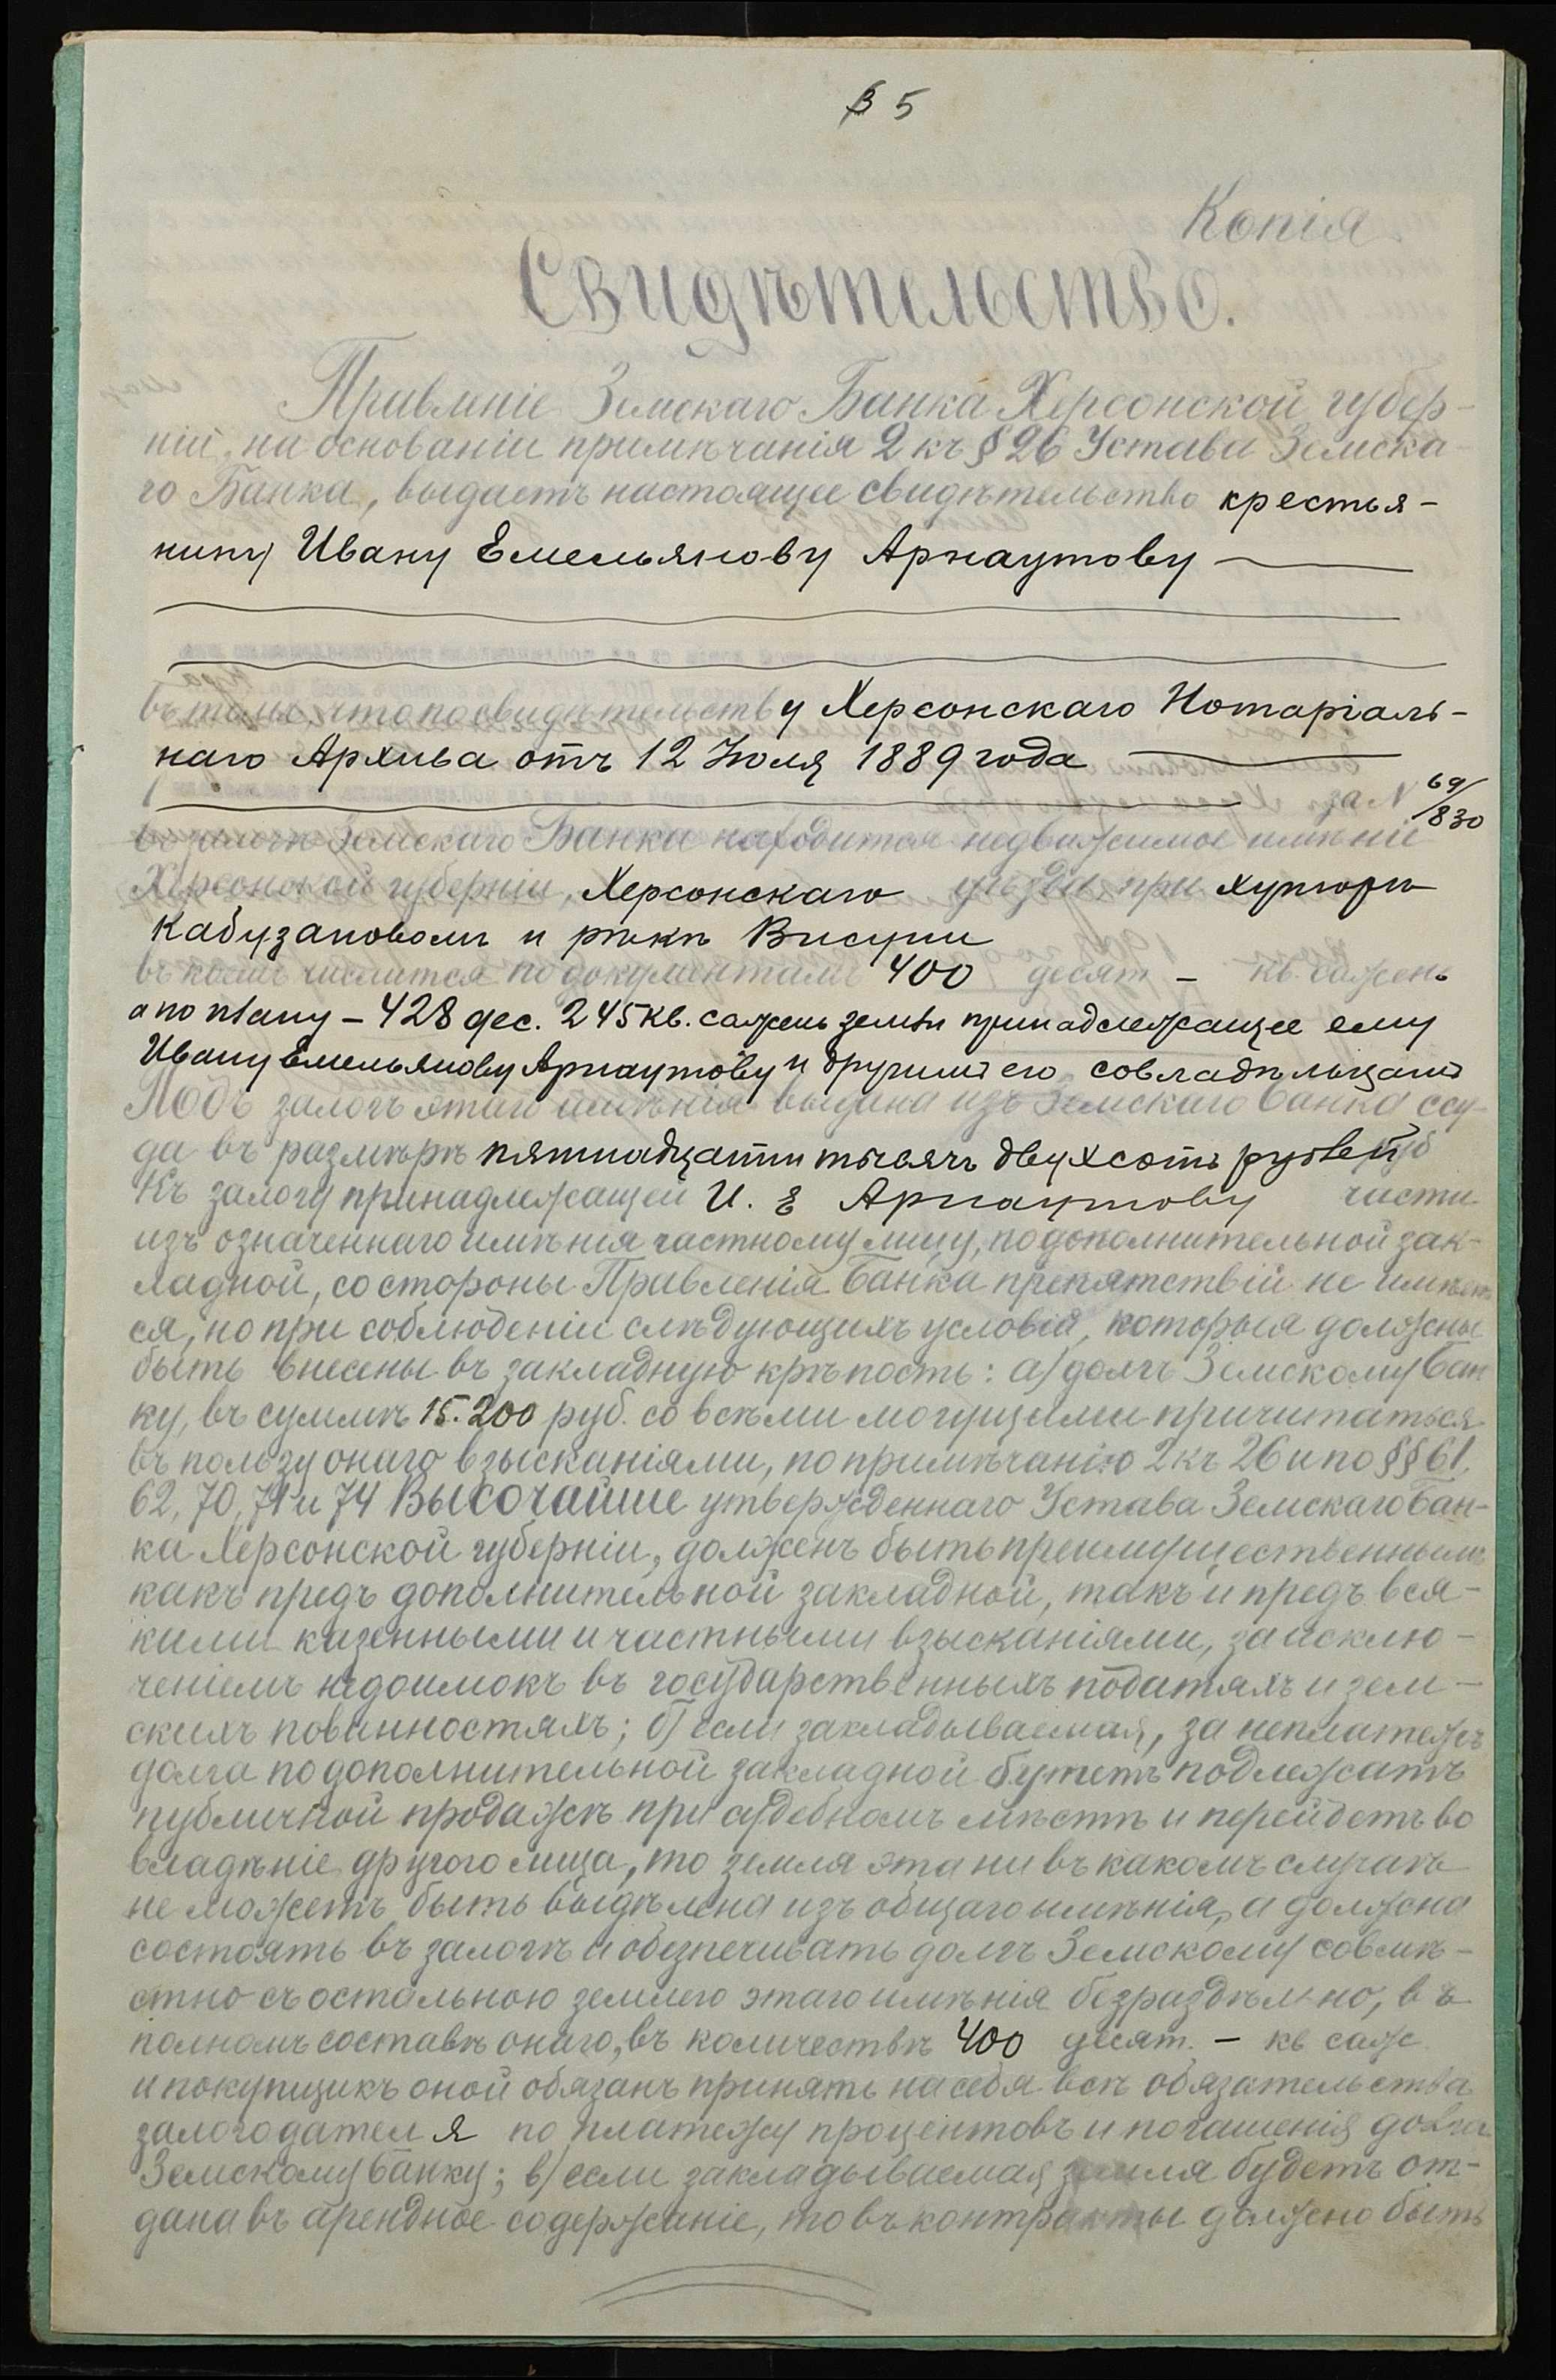 3 5
Копія
Свидѣтельство.
Правленіе Земскаго Банка Херсонской губер-
ніи, на основаніи примѣчанія 2 къ § 26 Устава Земска-
го Банка, выдаетъ настоящее свидѣтельство крестья-
нину Ивану Емельянову Арнаутову
въ томъ, что по свидѣтельству Херсонскаго Нотаріаль-
наго Архива отъ 12 Іюля 1889 года
за N 69/830
въ залогѣ Земскаго Банка находится недвижимое имѣніе
Херсонской губерніи, Херсонскаго уѣзда, при хуторѣ
Кабузановомъ и рѣкѣ Висуни
въ коемъ числится по документамъ 400 десят – кв. сажень
а по плану – 428 дес. 245 кв. сажень земли принадлежащее ему
Ивану Емельянову Арнаутову и другимъ его совладѣльцамъ
Подъ залогъ этого имѣнія выдана изъ Земскаго банка ссу-
да въ размѣрѣ пятнадцати тысячъ двухсотъ рублей руб
Къ залогу принадлежащей И. Е Арнаутову части
изъ означеннаго имѣнія частному лицу, по дополнительной зак-
ладной, со стороны Правленія Банка препятствій не имѣет
ся, но при соблюденіи слѣдующихъ условій, которыя должны
быть внесены въ закладную крѣпость: а) долгъ Земскому Бан
ку, въ суммѣ 15.200 руб. со всѣми могущими причитаться
въ пользу онаго взысканіями, по примѣчанію 2 къ 26 и по §§ 61,
62, 70, 71 и 74 Высочайше утвержденнаго Устава Земскаго Бан-
ка Херсонской губерніи, долженъ быть преимущественнымъ
какъ предъ дополнительной закладной, такъ и предъ вся-
кими казенными и частными взысканіями, за исклю-
ченіемъ недоимокъ въ государственныхъ податяхъ и зем-
скихъ повинностяхъ; б) если закладываемая, за неплатежъ
долга по дополнительной закладной будетъ подлежать
публичной продажѣ при судебномъ мѣстѣ и перейдетъ во
владѣніе другого лица, то земля эта ни въ какомъ случаѣ
не можетъ быть выдѣлена изъ общаго имѣнія, а должна
состоять въ залогѣ и обезпечивать долгъ Земскому совмѣ-
стно съ остальною землею этаго имѣнія безраздѣльно, въ
полномъ составѣ онаго, въ количествѣ 400 десят. – кв саж
и покупщикъ оной обязанъ принять на себя всѣ обязательства
залогодателя по платежу процентовъ и погашенія долга
Земскому банку; в) если закладываемая земля будетъ от-
дана въ арендное содержаніе, то въ контракты должно быть